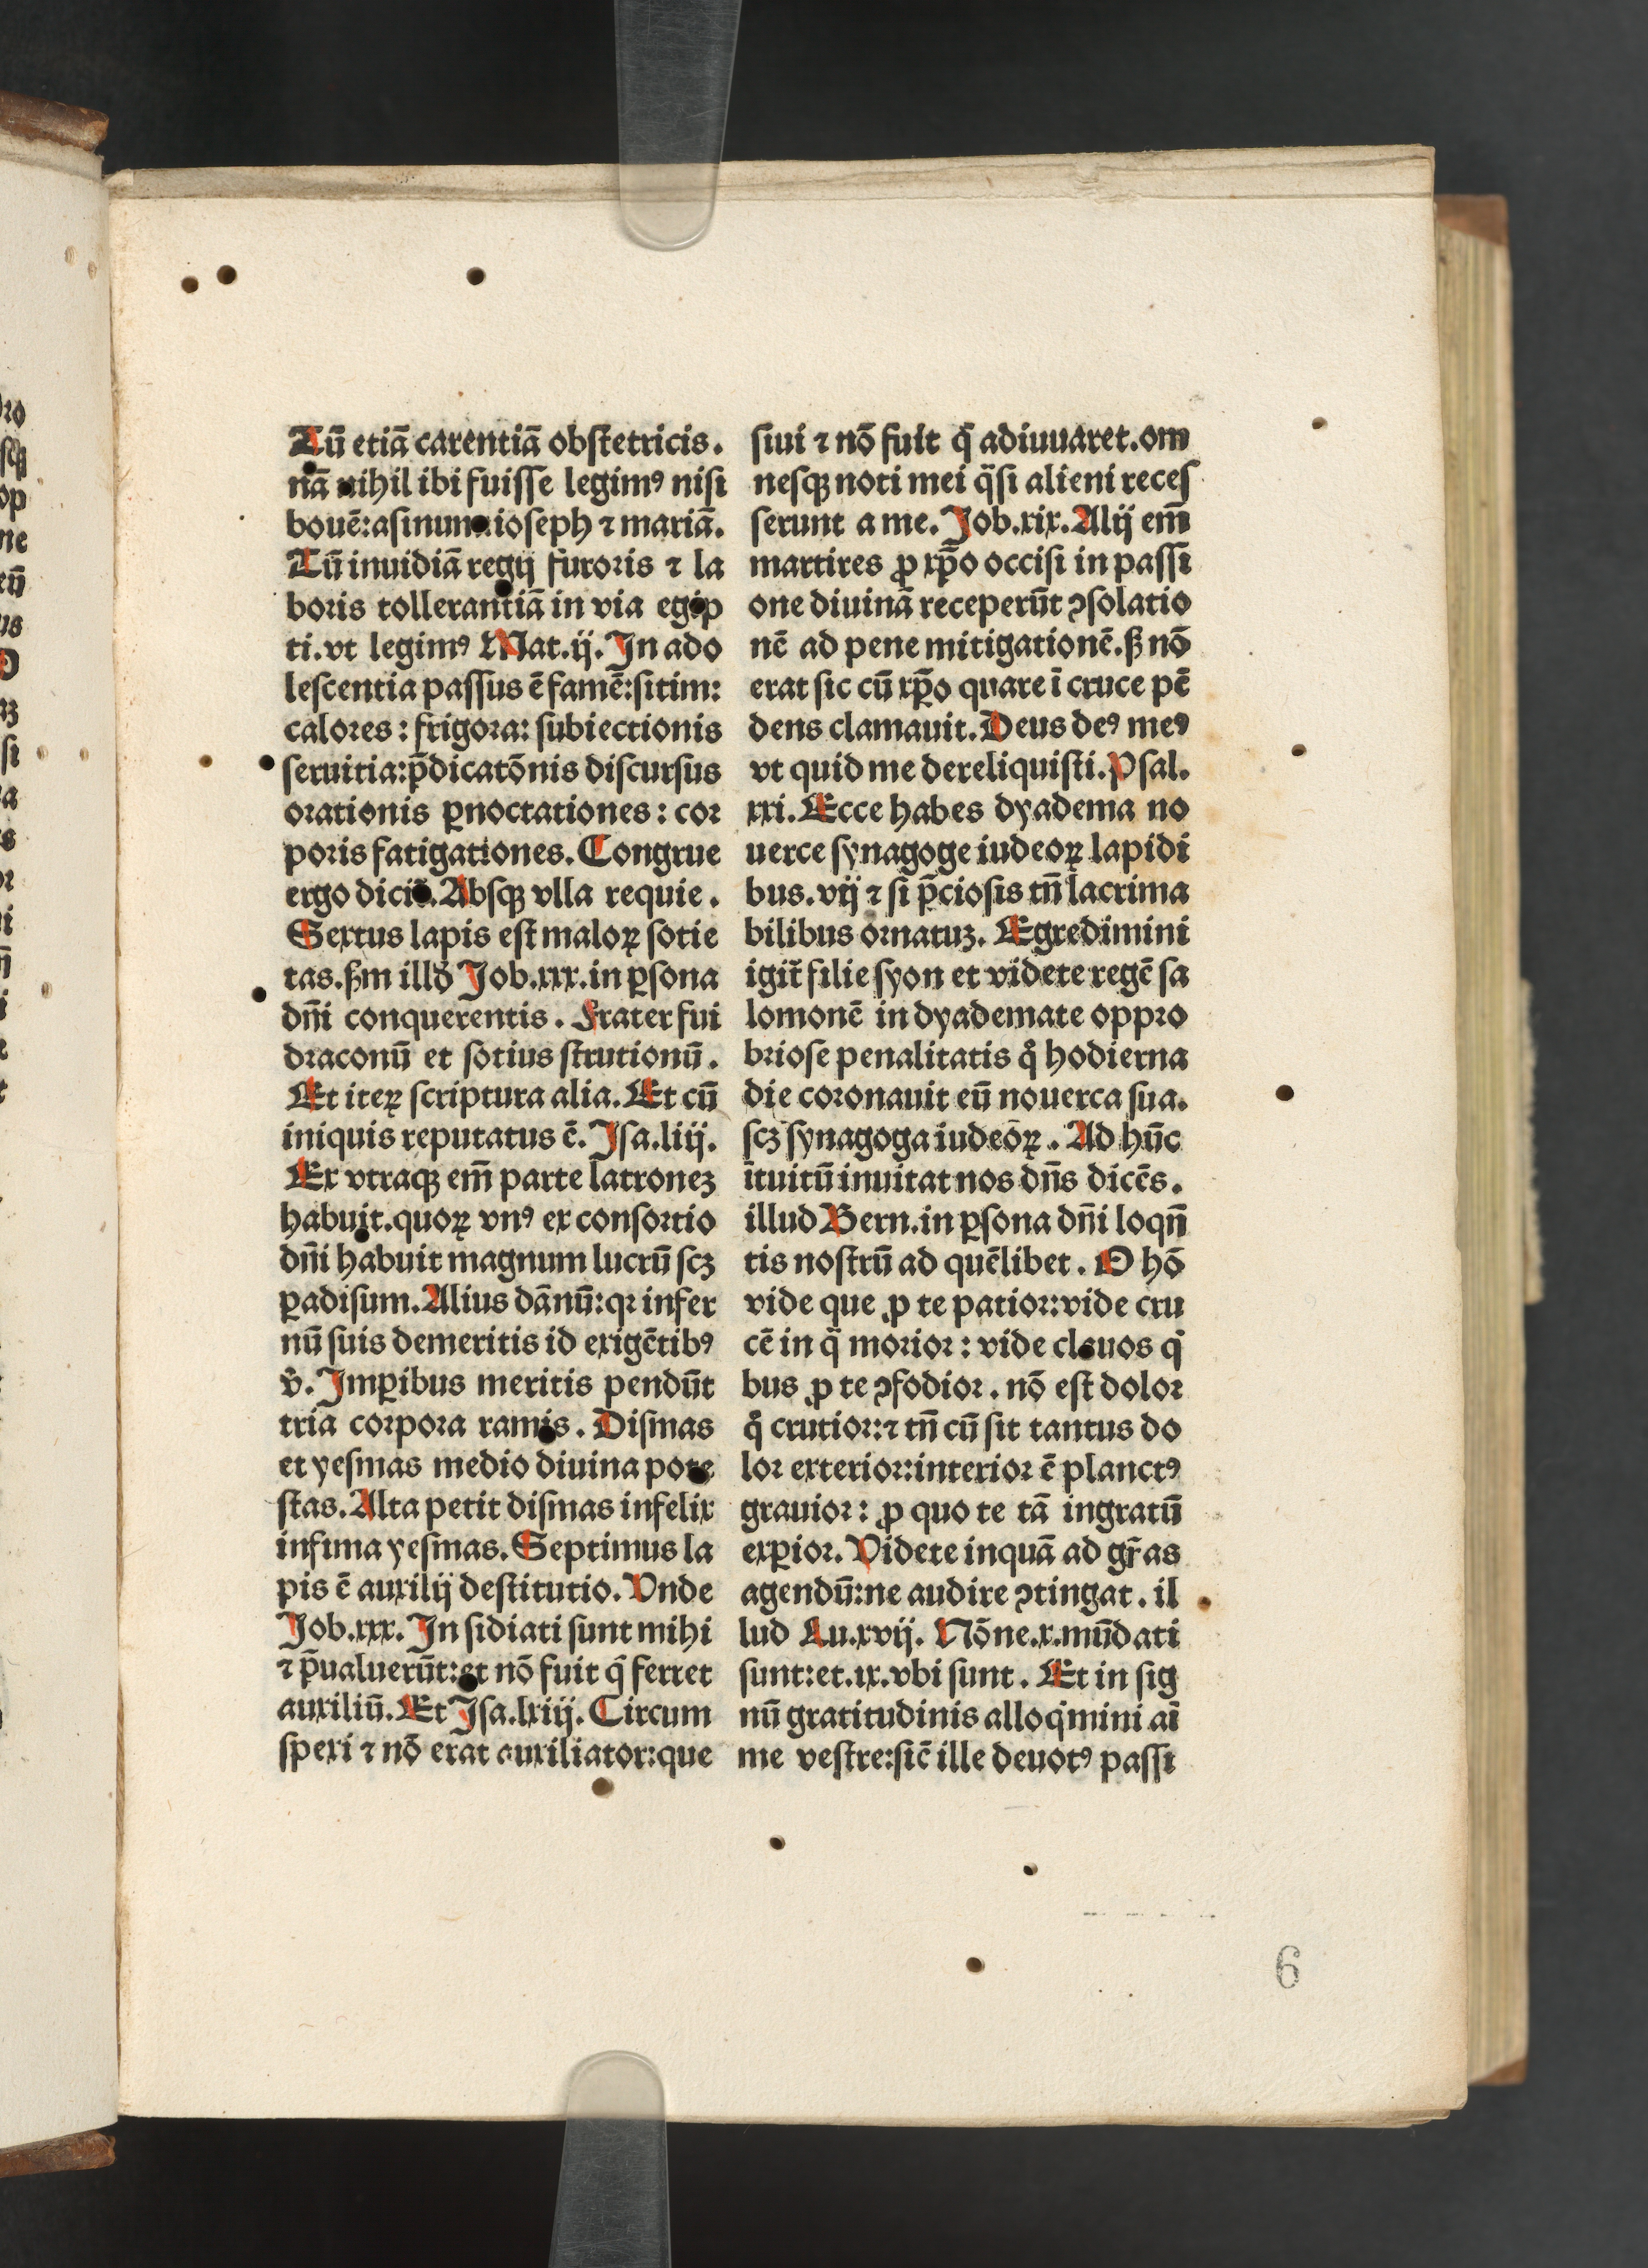 Tū etiā carentiā obstetricis.
nā nihil ibi fuisse legimꝰ nisi
bouē:asinum:ioseph ⁊ mariā.
Tū inuidiā regij furoris ⁊ la
boris tollerantiā in via egip
ti.vt legimꝰ Mat.ij. In ado
lescentia passus ē famē:sitim:
calores: frigora: subiectionis
seruitia:p̄dicatōnis discursus
orationis ꝑnoctationes: cor
poris fatigationes. Congrue
ergo dicit. Absqꝫ vlla requie.
Sextus lapis est maloꝝ sotie
tas.ẞm illđ Job.xxx.in ꝑsona
dn̄i conquerentis. Frater fui
draconū et sotius strutionū.
Et iteꝝ scriptura alia. Et cū
iniquis reputatus ē. Isa.liij.
Ex vtraqꝫ em̄ parte latroneꝫ
habuit.quoꝝ vnꝰ ex consortio
dn̄i habuit magnum lucrū scꝫ
ꝑadisum. Alius dānū:qꝛ infer
nū suis demeritis id exigētibꝰ
v̄. Imꝑibus meritis pendūt
tria corpora ramis. Dismas
et yesmas medio diuina pote
stas. Alta petit dismas infelix
infima yesmas. Septimus la
pis ē auxilij destitutio. Vnde
Job.xxx. In sidiati sunt mihi
⁊ p̄ualuerūt:et nō fuit q̄ ferret
auxiliū. Et Isa.lxiij. Circum
spexi ⁊ nō erat auxiliator:que
siui ⁊ nō fuit q̄ adiuuaret.om
nesqꝫ noti mei q̄si alieni reces
serunt a me. Job.xix. Alij em̄
martires ꝓ xp̄o occisi in passi
one diuinā receperūt ꝯsolatio
nē ad pene mitigationē.ẞ nō
erat sic cū xp̄o quare ī cruce pē
dens clamauit. Deus deꝰ meꝰ
vt quid me dereliquisti. Psal.
xxi. Ecce habes dyadema no
uerce synagoge iudeoꝝ lapidi
bus.vij ⁊ si p̄ciosis tn̄ lacrima
bilibus ornatuꝫ. Egredimini
igit̄ filie syon et videte regē sa
lomonē in dyademate oppro
briose penalitatis q̊ hodierna
die coronauit eū nouerca sua.
scꝫ synagoga iudeoꝝ. Ad hūc
ītuitū inuitat nos dn̄s dicēs.
illud Bern.in ꝑsona dn̄i loqn̄
tis nostrū ad quēlibet. O hō
vide que ꝓ te patior:vide cru
cē in q̄ morior: vide clauos q̇
bus ꝓ te ꝯfodior. nō est dolor
q̊ crutior:⁊ tn̄ cū sit tantus do
lor exterior:interior ē planctꝰ
grauior: ꝓ quo te tā ingratū
exꝑior. Videte inquā ad gr̄as
agendū:ne audire ꝯtingat. il
lud Lu.xvij. Nōne.x.mūdati
sunt:et.ix.vbi sunt. Et in sig
nū gratitudinis alloq̇mini aī
me vestre:sic̄ ille deuotꝰ passi
6